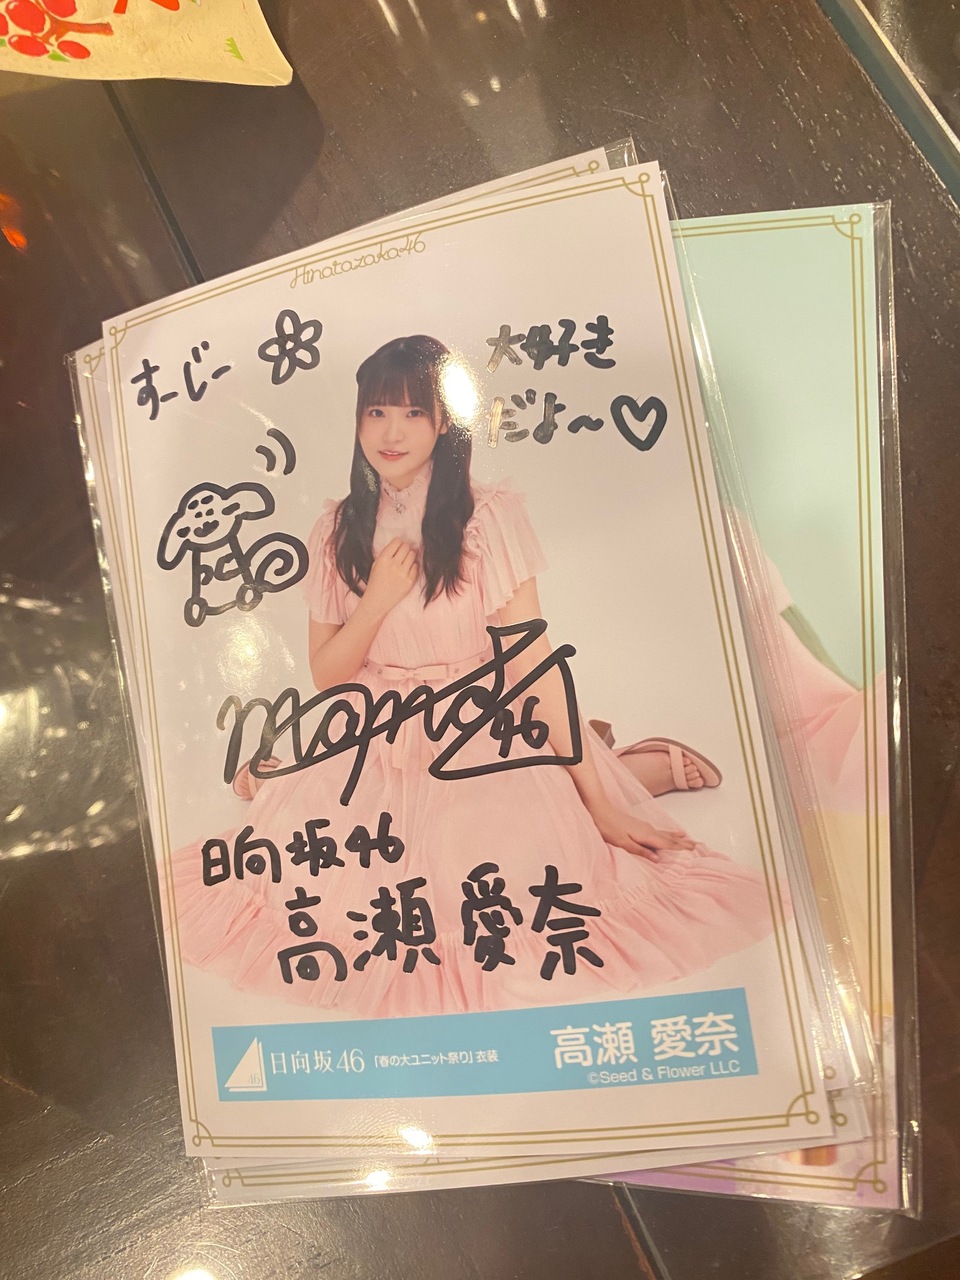 Hinatazaka46
すーじー
大好き
だよ〜♡
mana
46
日向坂46
高瀬愛奈
46
日向坂46 「春の大ユニット祭り」衣装
高瀬 愛奈
©Seed & Flower LLC